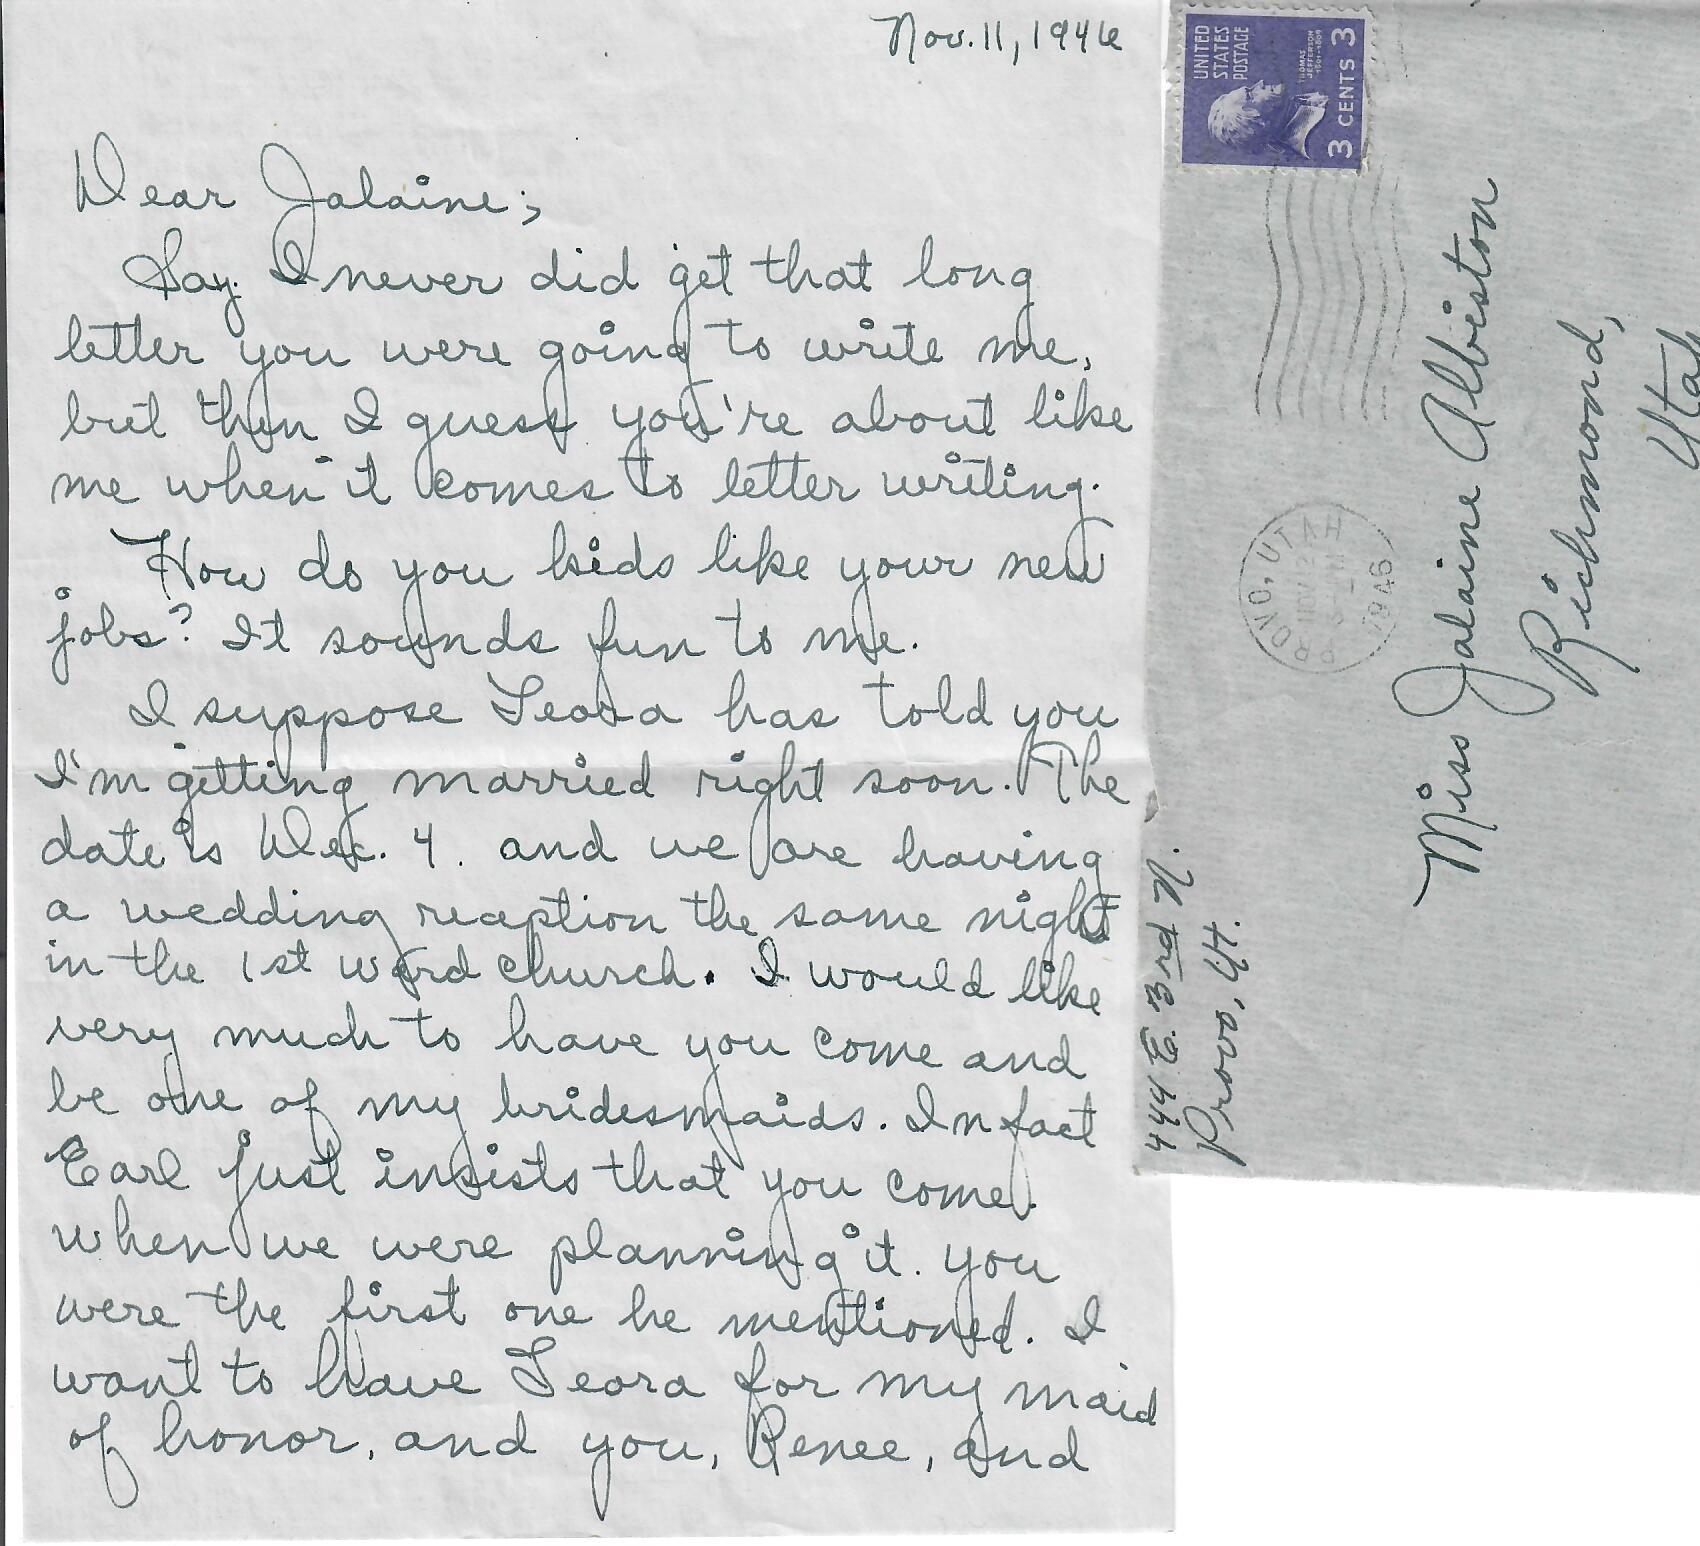 Nov. 11, 1946
Dear Jalaine;
Say I never did get that long
letter you were going to write me,
but then I guess you're about like
me when it comes to letter writing.
How do you kids like your new
jobs? It sounds fun to me.
I suppose Leora has told you
I'm getting married right soon. The
date is Dec. 4. and we are having
a wedding reception the same night
in the 1st ward church. I would like
very much to have you come and
be one of my bridesmaids. In fact
Earl just insists that you come.
when we were planning it. you
were the first one he mentioned. I
want to have Leora for my maid
of honor, and you, Renee, and
UNITED
STATES
POSTAGE
THOMAS
JEFFERSON
1801-1809
3 CENTS 3
PROVO, UTAH
NOV 12
1946
444 E. 3rd N.
Provo, Ut.
Miss Jalaine Albiston
Richmond,
Utah